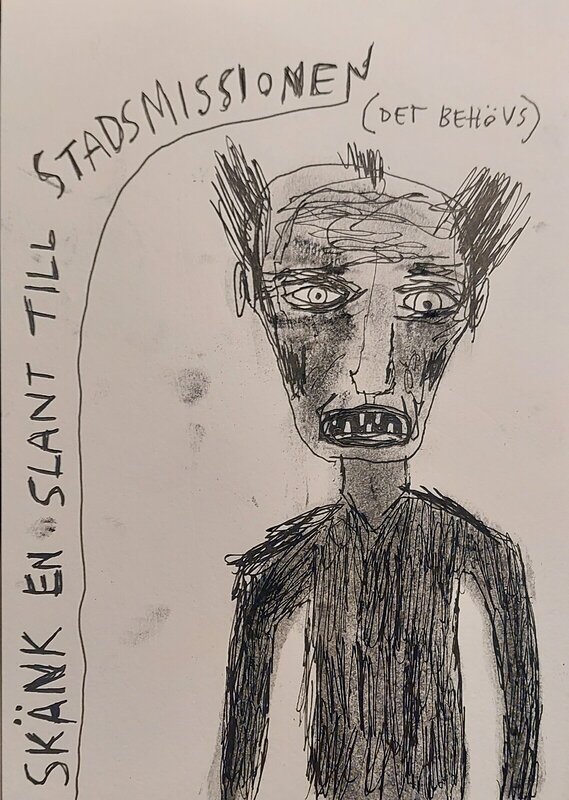 SKÄNK EN SLANT TILL STADSMISSIONEN
(DET BEHÖVS)